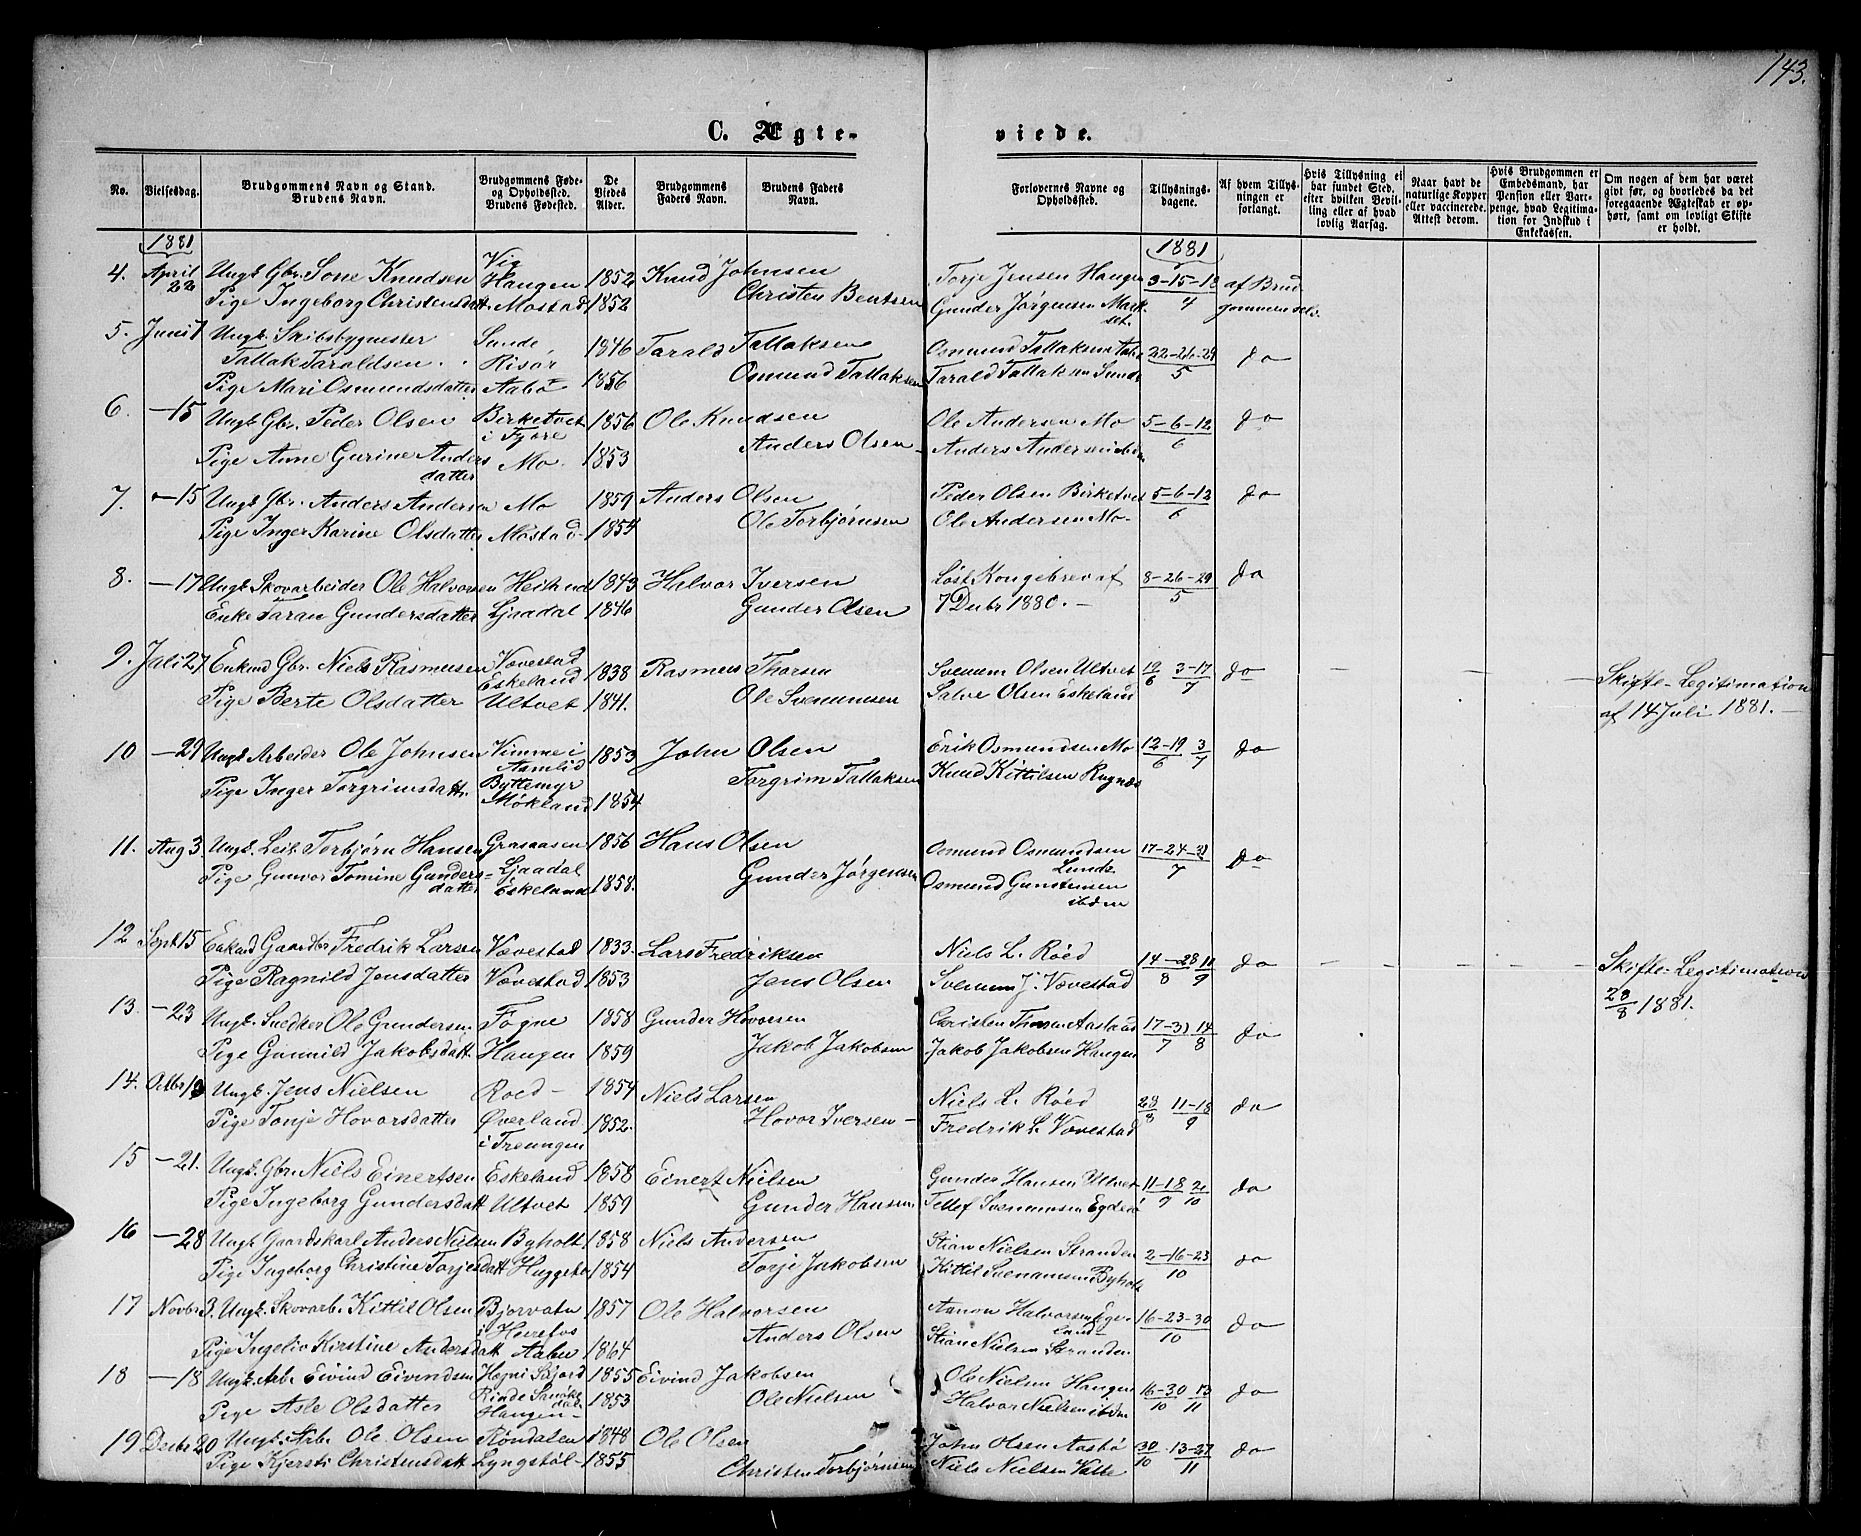 143.
C. Ægteviede.
No. Vielsesdag. Brudgommens Navn og Stand. Brudens Navn. Brudgommens Føde- og Opholdssted. Brudens Fødested. De Viedes Alder. Brudgommens Faders Navn. Brudens Faders Navn. Forlovernes Navne og Opholdssted. Tillysningsdagene. Af hvem Tillysningen er forlangt. Hvis Tillysning ei har fundet Sted, efter hvilken Bevilling eller af hvad lovlig Aarsag. Naar havt de naturlige Kopper eller vaccinerede. Attest derom. Hvis Brudgommen er Embedsmand, har Pension eller Vartpenge, hvad Legitimation for Indskud i Enkekassen. Om nogen af dem har været givt før, og hvorledes da det foregaaende Ægteskab er ophørt, samt om lovligt Skifte er holdt.
1881 1881
4. April 22 Ungk. Gbr. Sone Knudsen Vig Haugen 1852 Knud Johnsen Torje Jensen Haugen 3-15-18/4 af Brudgommen selv
Pige Ingeborg Christensdatt. Mostad 1852 Christen Bentsen Gunder Jørgensen
5. Juni 1 Ungk. Skibsbygmester Sunde, 1846 Tarald Tallaksen Osmund Tallaksen Aabø 22-26-29/5 do
Tallak Taraldsen. Risør
Pige Mari Osmundsdatter Aabø 1856 Osmund Tallaksen Tarald Tallaksen Sunde
6. -15 Ungk. Gbr. Peder Olsen Birketvet i Fjære 1856 Ole Knudsen Ole Andersen Mo 5-6-12/6 do
Pige Anne Gurine Andersdatter Mo. 1853 Anders Olsen Anders Andersen ibdm
7. -15 Ungk. Gbr. Anders Andersen Mo 1859 Anders Olsen Peder Olsen Birketvet 5-6-12/6 do
Pige Inger Karine Olsdatter Mostad 1854 Ole Torbjørnsen Ole Andersen Mo-
8. -17 Ungk. Skovarbeider Ole Halvorsen 1843 Halvor Iversen Løst Kongebrev af 8-26-29/5 do
Enke Taran Gundersdatter Ljaadal 1846 Gunder Olsen 7 Decbr 1880.-
9. Juli 27 Enkmd Gbr. Niels Rasmusen Vævestad Eskeland 1838 Rasmus Thorsen Svenum Olsen Ultvet 19/6 3-17/7 do - - - Skifte-Legitimation
Pige Berte Olsdatter Ultvet 1841. Ole Svenumsen Salve Olsen Eskeland af 14 Juli 1881.-
10 -29 Ungk. Arbeider Ole Johnsen Vimme i Aamlid 1853 John Olsen Erik Osmundsen Mo 12-19/6 3/7 do
Pige Inger Torgrimsdatt. Byttemyr Mökland 1854 Torgrim Tallaksen Knud Kittilsen Rugnæs
11. Aug 3. Ungk. Leil. Torbjørn Hansen Graaasen 1856 Hans Olsen Osmund Osmundsen Lunde 17-24-31/7 do
Pige Gunvor Tomine Gundersdatter Ljaadal Eskeland 1858. Gunder Jørgensen Osmund Gunstensen ibdm
12 Sept 15 Enkmd Gaardbr Fredrik Larsen Vævestad 1833. Lars Fredriksen Niels L. Røed 14-28/8 11/9 do - - - Skifte-Legitimation
Pige Ragnild Jensdatter Vævestad 1853 Jens Olsen Svenum J. Vævestad 28/8 1881.
13. -23 Ungk. Snedker Ole Gundersen. Fogne 1858 Gunder Hovorsen Christen Thorsen Aasland 17-31/7 14/8 do
Pige Gunnild Jakobsdatt. Haugen 1859 Jakob Jakobsen Jakob Jakobsen Haugen
14. Octbr Ungk. Jens Nielsen Roed- 1854 Niels Larsen Niels L. Røed 28/8 11-18/9 do
Pige Tonje Hovorsdatter Øverland i Treungen 1852. Hovor Iversen- Fredrik L. Vævestad
15 -21. Ungk. Gbr. Niels Einertsen Eskeland 1858 Einert Nielsen Gunder Hansen Ultvet 11-18/9 2/10 do
Pige Ingeborg Gundersdatt Ultvet 1859 Gunder Hansen Tellef Svenumsen
16 -28 Ungk. Gaardskarl Anders Nielsen Byholt 1858 Niels Andersen Stian Nielsen Stranden 2-16-23/10 do
Pige Ingeborg Christine Torjesdatt 1854 Torje Jakobsen Kittil Svenumsen Byholt
17 Novbr 3. Ungk. Skovarb. Kittil Olsen Bjorvatn i Heirefos 1857 Ole Halvorsen Aanon Halvorsen Egeland 16-23-30/10 do
Pige Ingeliv Kirstine Andersdatt 1864 Anders Olsen Stian Nielsen Stranden
18 -18 Ungk. Arb. Eivind Eivindsen 1855 Eivind Jakobsen Ole Nielsen Haugen 16-30/10 13/11 do
Pige Asle Olsdatter Haugen- 1853 Ole Nielsen Halvor Nielsen ibdm
19 Decbr 20 Ungk. Arb. Ole Olsen Røndalen 1848 Ole Olsen John Olsen Aasbø 30/10 13-27/11 do
Pige Kjersti Christensdatt Lyngstøl- 1855 Christen Torbjørnsen Niels Nielsen Vatte